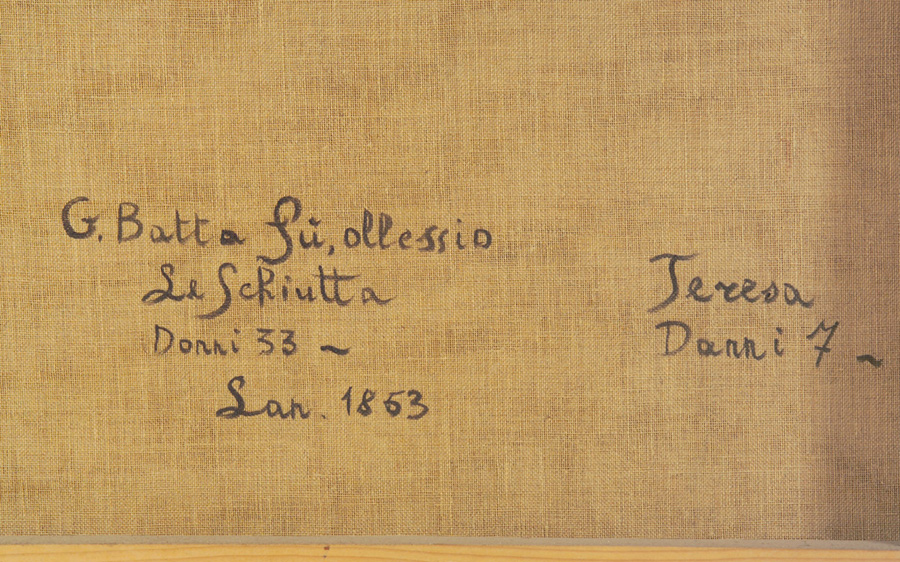 G. Batta Fù, ollessio
Le Schiutta
Donni 33 ~
Lan. 1853
Teresa
Danni 7 ~